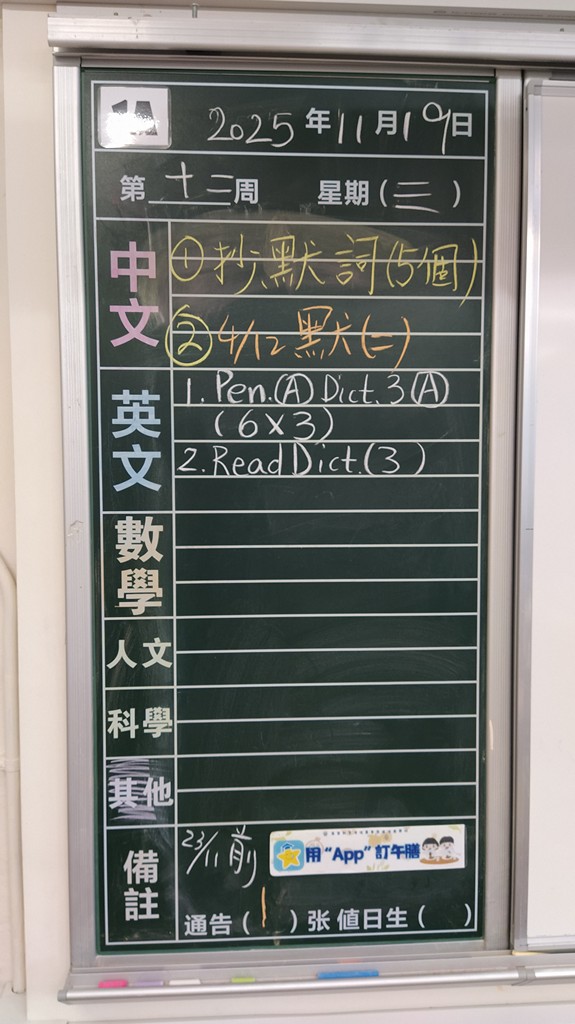 1A
2025年11月19日
第十二周 星期(三)
中文
①抄默詞(5個)
②4/12默(二)
英文
1. Pen.Ⓐ Dict. 3Ⓐ
(6×3)
2. Read Dict. (3)
數學
人文
科學
其他
備註
23/11前
用“App”訂午膳
通告(1)张 值日生( )